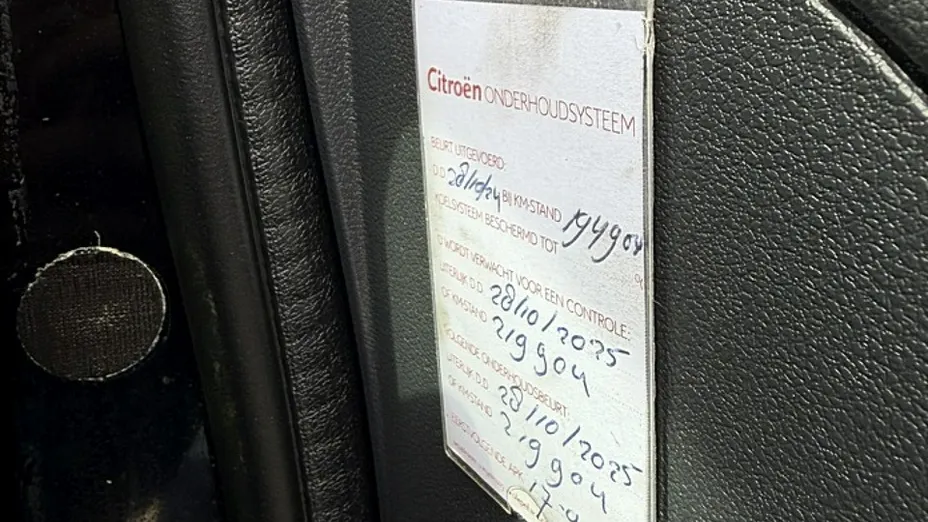 Citroën ONDERHOUDSYSTEEM
BEURT UITGEVOERD:
D.D. 28/10/24 BIJ KM-STAND 194904
KOELSYSTEEM BESCHERMD TOT
U WORDT VERWACHT VOOR EEN CONTROLE:
UITERLIJK D.D. 28/10/2025
OF KM-STAND 219904
VOLGENDE ONDERHOUDSBEURT:
UITERLIJK D.D. 28/10/2025
OF KM-STAND 219904
EERSTVOLGENDE APK